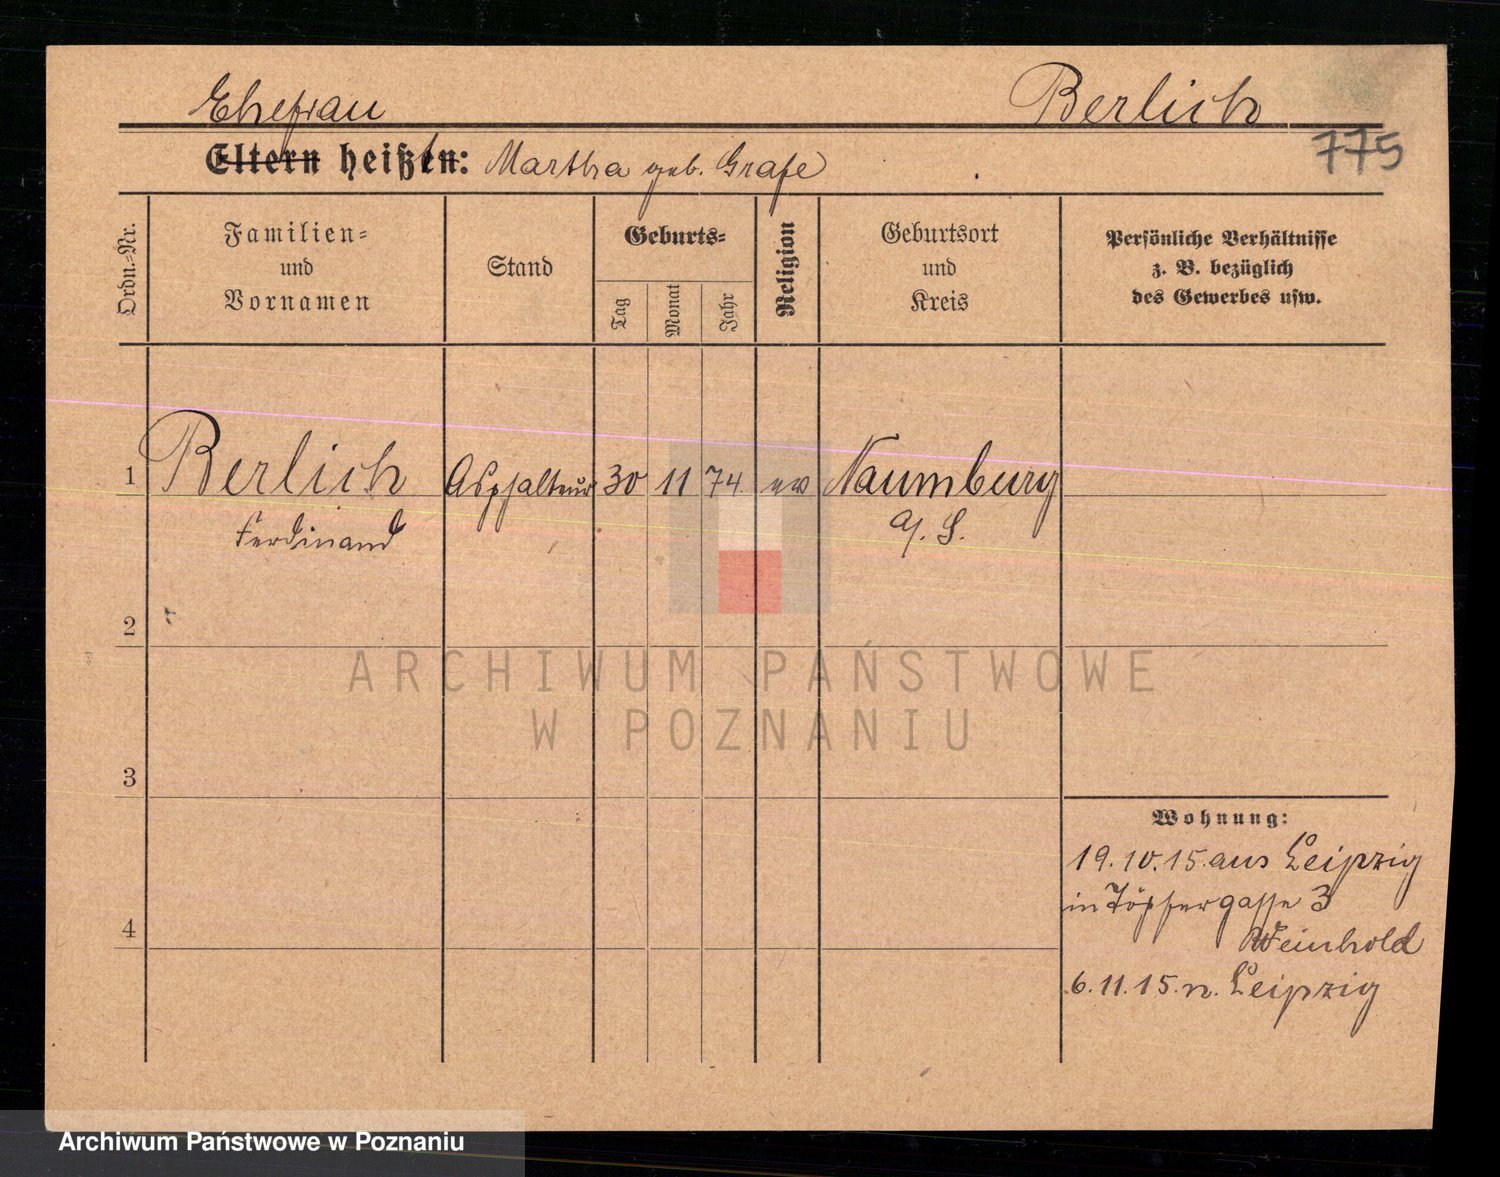 Ehefrau
Berlich
775
Eltern heißt: Martha geb. Grafe
Ordn.=Nr.
Familien=
und
Vornamen
Stand
Geburts=
Tag
Monat
Jahr
Religion
Geburtsort
und
Kreis
Persönliche Verhältnisse
z. B. bezüglich
des Gewerbes usw.
1 Berlich Asphalteur 30 11 74 ev Naumburg
Ferdinand a/. S.
2
3
4
Wohnung:
19.10.15. aus Leipzig
in Töpfergasse 3
Weinhold
6.11.15. n. Leipzig
ARCHIWUM PAŃSTWOWE
W POZNANIU
Archiwum Państwowe w Poznaniu